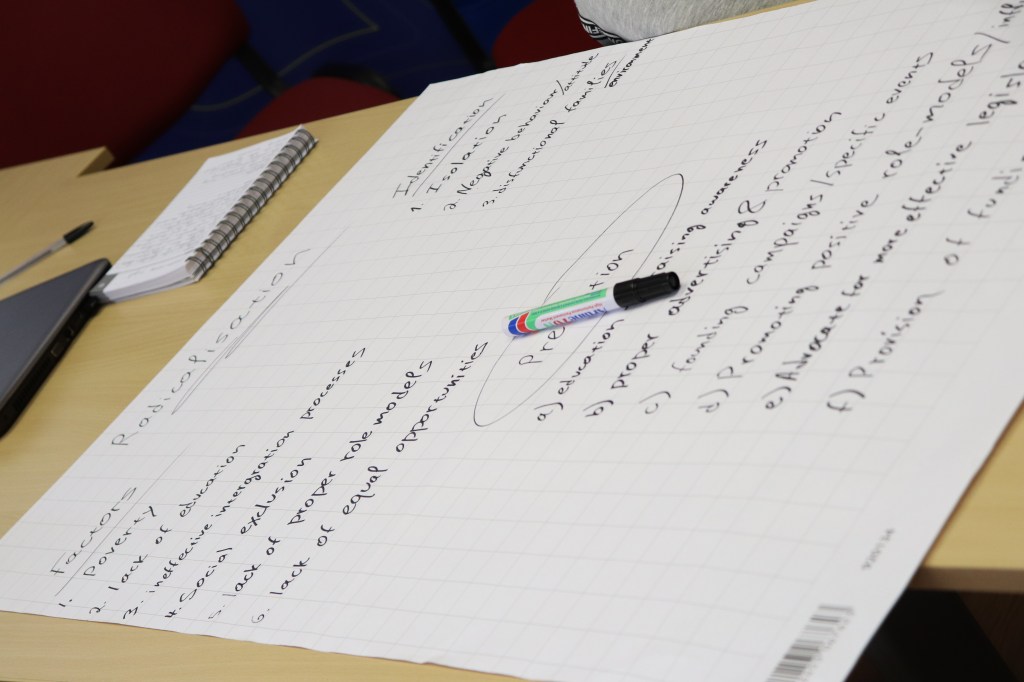 Radicalisation
Factors
1. Poverty
2. lack of education
3. ineffective intergration processes
4. Social exclusion
5. lack of proper role models
6. lack of equal opportunities
Identification
1. Isolation
2. Negative behaviour/attitude
3. disfunctional families
environment
Pre tion
a) education aising awareness
b) proper advertising & promotion
c) founding campaigns/specific events
d) Promoting positive role-models/
e) Advocate for more effective
f) Provision of